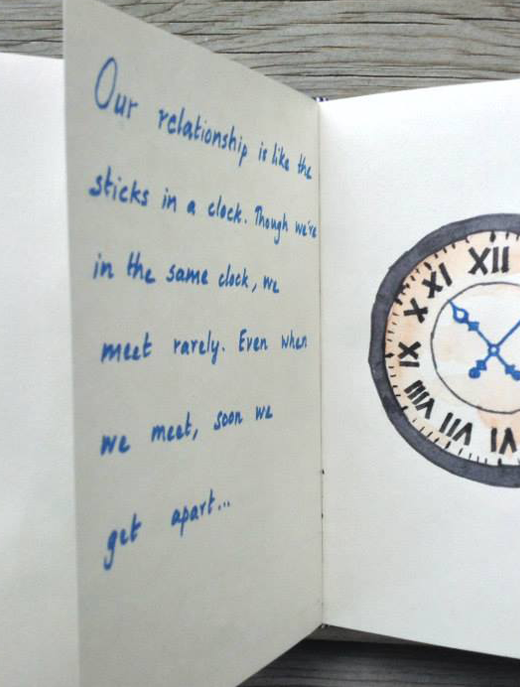 Our relationship is like the
sticks in a clock. Though we're
in the same clock, we
meet rarely. Even when
we meet, soon we
get apart...
XII
XI
X
IX
VIII
VII
VI